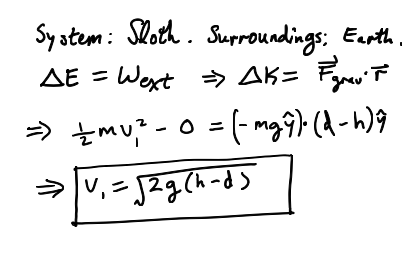 System: Sloth. Surroundings: Earth.
ΔE = W_ext ⇒ ΔK = F⃗_grav · r⃗
⇒ ½ m v₁² − 0 = (−mg ŷ)·(d − h) ŷ
⇒ v₁ = √2g(h−d)